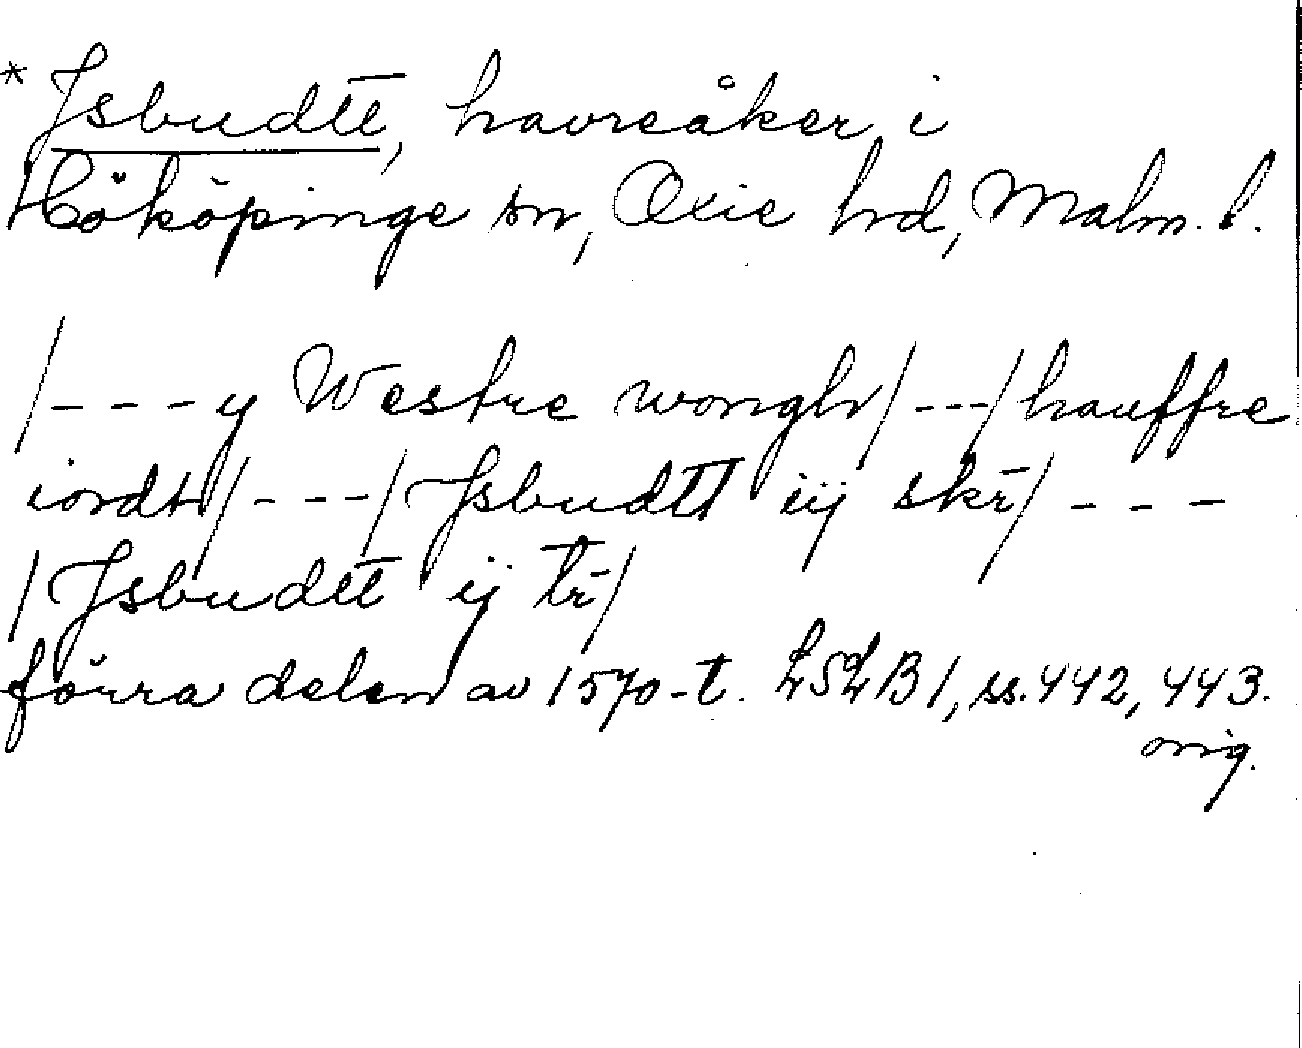 * Jsbudtt, havreåker i
Hököpinge sn, Oxie hd, Malm. l.
/---y Westre wongh/---/hauffre
iordt/---/Jsbudtt iij skr/---
/Jsbudtt ij tr/
förra delen av 1570-t. LSLB1, ss. 442, 443.
orig.